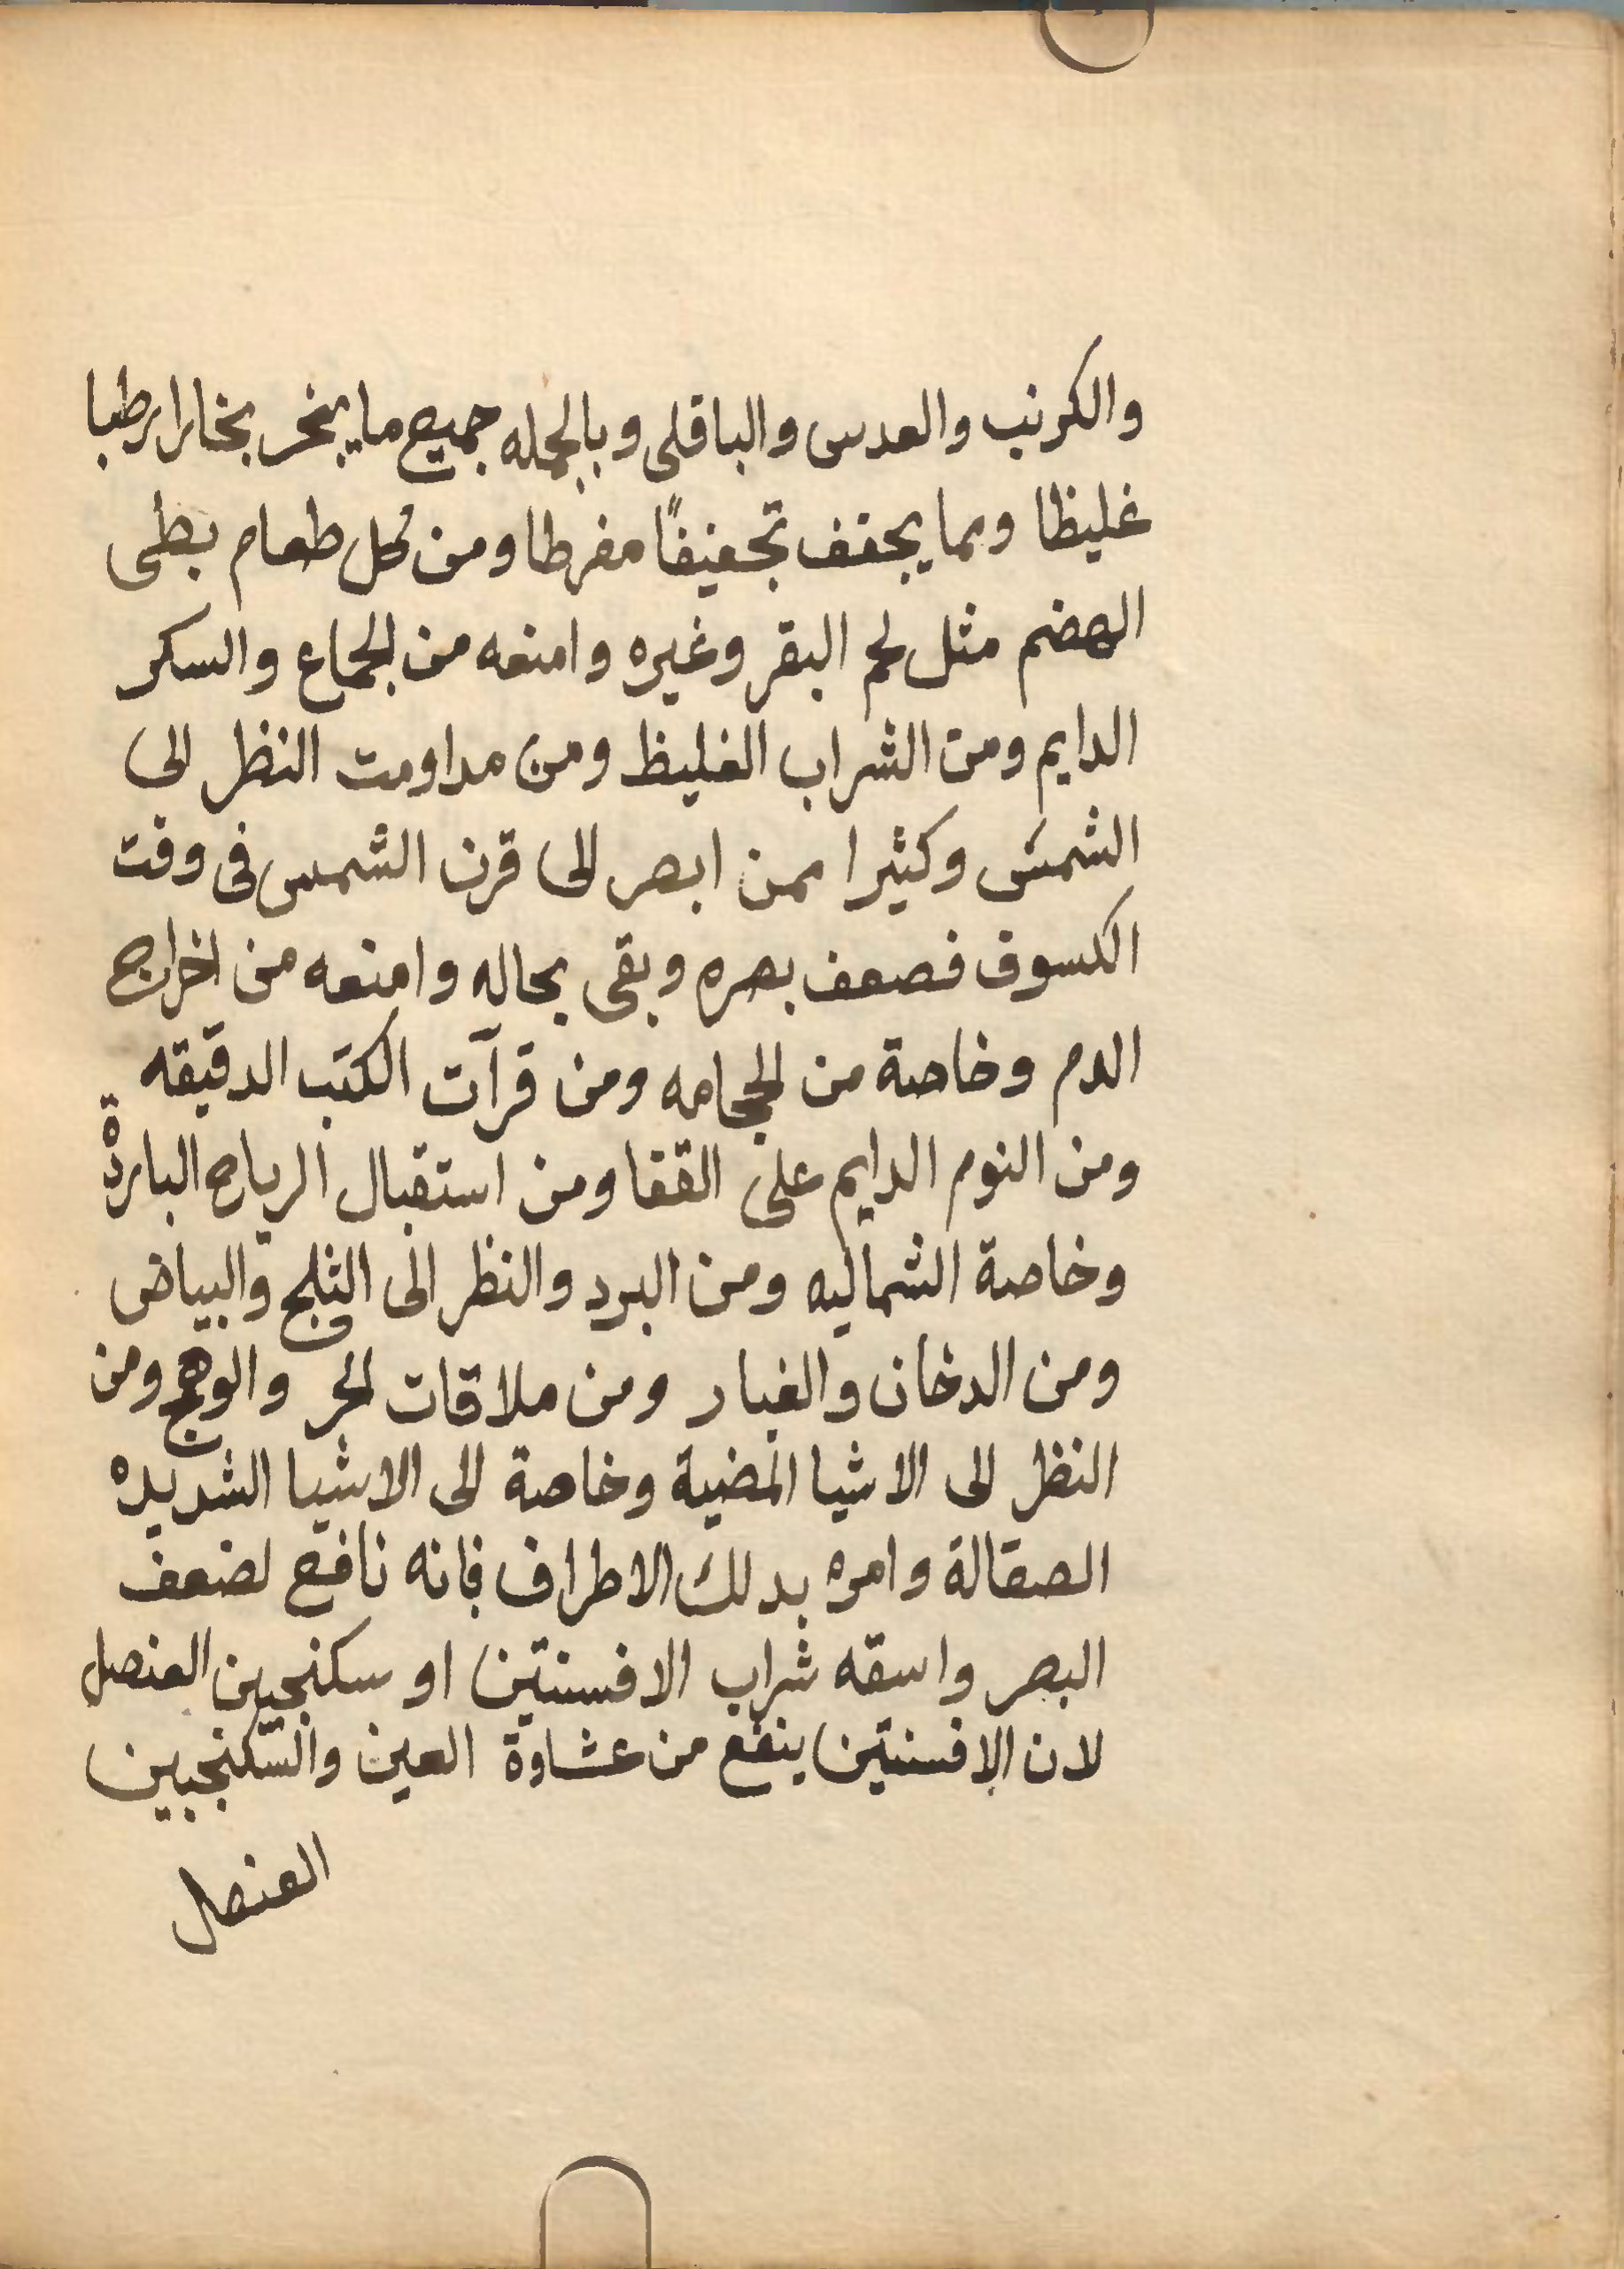 والكرنب والعدس والباقلى وبالجمله جميع ما يبخر بخارا رطبا
غليظا ومما يجفف تجفيفًا مفرطا ومن كل طعام بطى
الهضم مثل لحم البقر وغيره وامنعه من الجماع والسكر
الدايم ومن الشراب الغليظ ومن مداومت النظر الى
الشمس وكثيرا ممن ابصر الى قرن الشمس فى وقت
الكسوف فضعف بصره وبقى بحاله وامنعه من اخراج
الدم وخاصة من الحجامه ومن قرآت الكتب الدقيقه
ومن النوم الدايم على القفا ومن استقبال الرياح الباردة
وخاصة الشماليه ومن البرد والنظر الى الثلج والبياض
ومن الدخان والغبار ومن ملاقات الحر والوهج ومن
النظر الى الاشيا المضية وخاصة الى الاشيا الشديده
الصقالة وامره بدلك الاطراف فانه نافع لضعف
البصر واسقه شراب الافسنتين او سكنجبين العنصل
لان الافسنتين ينفع من عشاوة العين والسكنجبين
العنصل